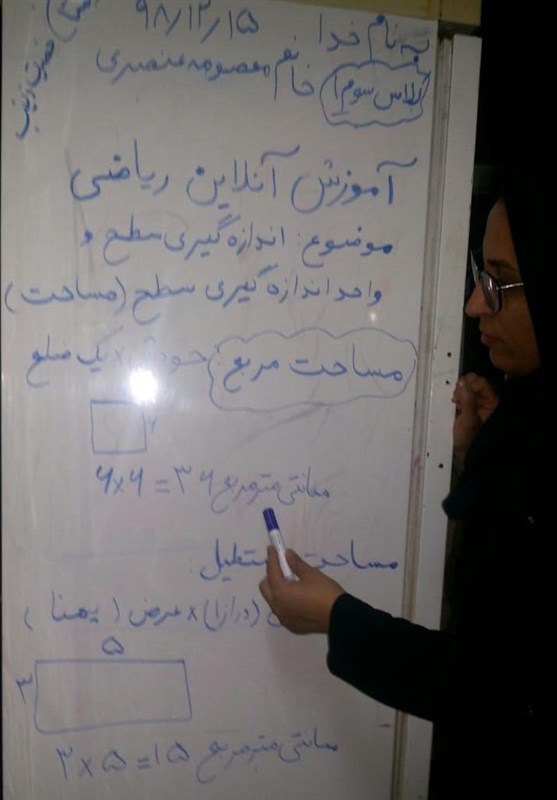 به نام خدا
۹۸/۱۲/۱۵
کلاس سوم
خانم معصومه عنصری
آموزش آنلاین ریاضی
موضوع: اندازه گیری سطح و
واحد اندازه گیری سطح (مساحت)
مساحت مربع: × یک ضلع
۶
۶×۶ = ۳۶ سانتی متر مربع
مساحت مستطیل:
(درازا) × عرض (پهنا)
۵
۳
۳×۵=۱۵ سانتی متر مربع